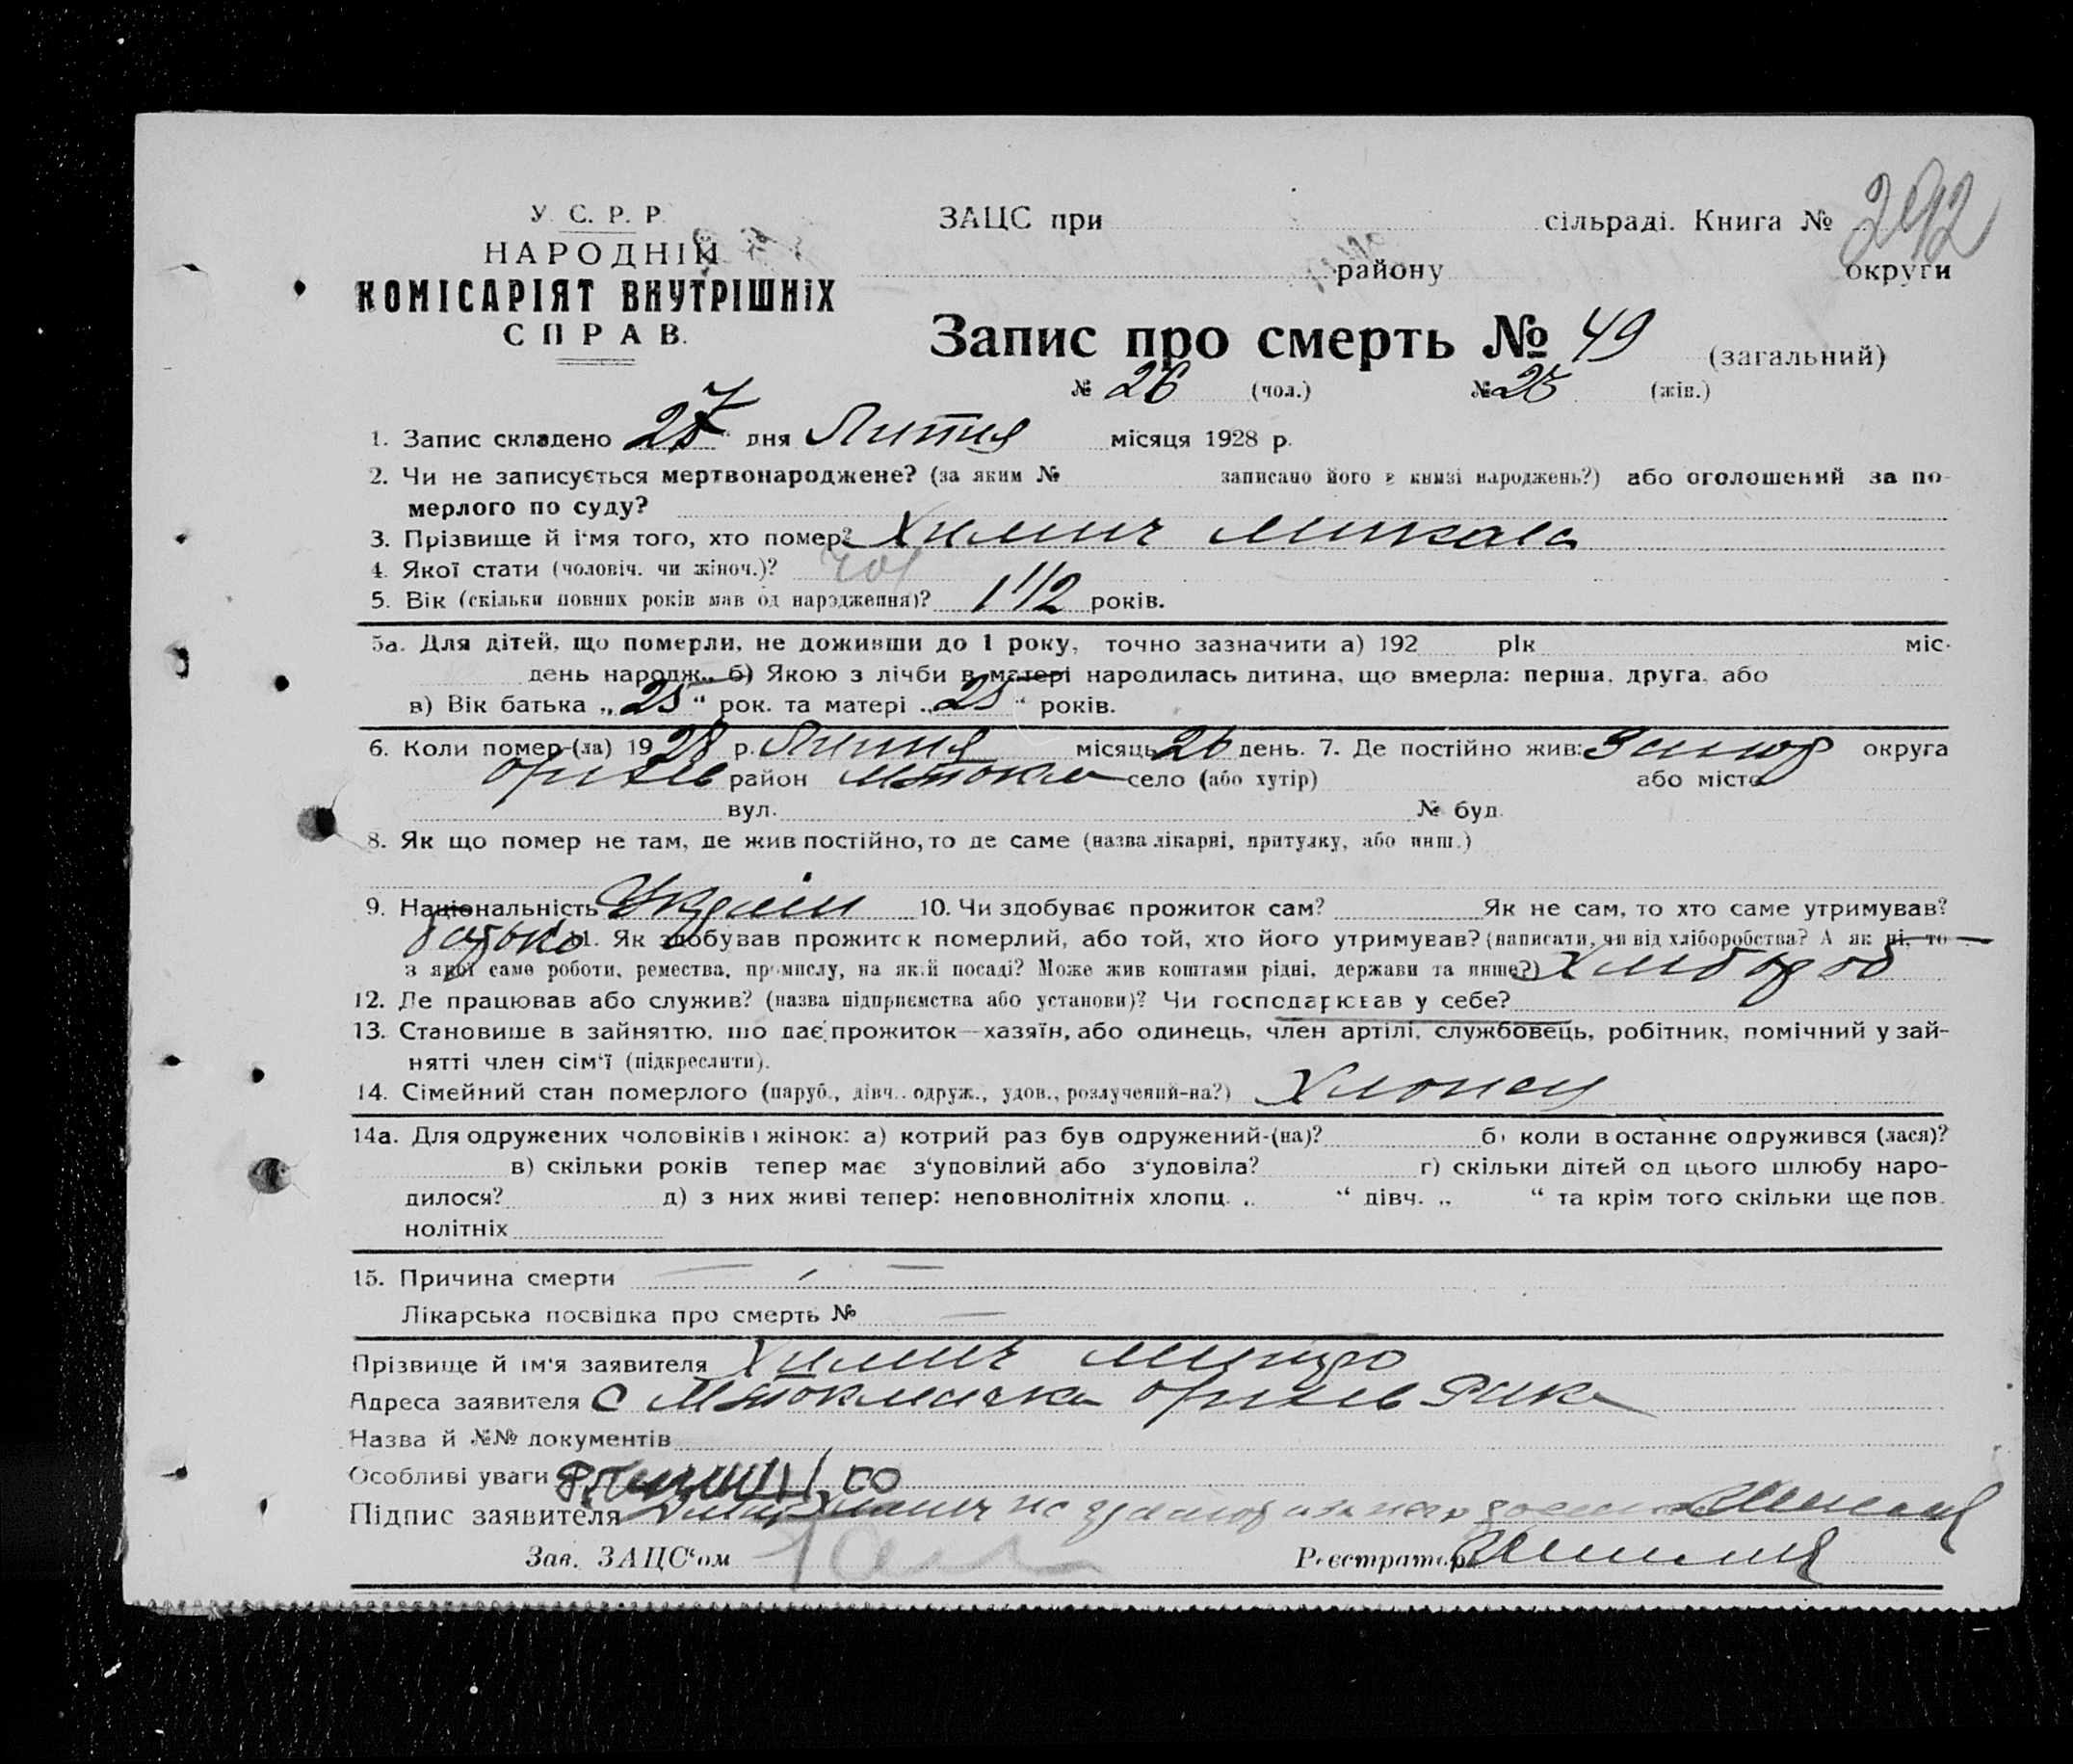 У. С. Р. Р.
НАРОДНІЙ
КОМІСАРІЯТ ВНУТРІШНІХ
СПРАВ.
ЗАЦС при сільраді. Книга № 292
району округи
Запис про смерть № 49 (загальний)
№ 26 (чол.) № 23 (жін.)
1. Запис складено 27 дня Липня місяця 1928 р.
2. Чи не записується мертвонароджене? (за яким № записано його в книзі народжень?) або оголошений за по-
мерлого по суду?
3. Прізвище й ім'я того, хто помер? Химич Микола
4. Якої стати (чоловіч. чи жіноч.)? чол
5. Вік (скільки повних років мав од народження)? 1 1/2 років.
5а. Для дітей, що померли, не доживши до 1 року, точно зазначити а) 192 рік міс.
день народж., б) Якою з лічби в матері народилась дитина, що вмерла: перша, друга, або
в) Вік батька „25“ рок. та матері „25“ років.
6. Коли помер-(ла) 1928 р. Липня місяць 26 день. 7. Де постійно жив: Запор округа
Оріхів район село (або хутір) або місто
вул. № буд.
8. Як що помер не там, де жив постійно, то де саме (назва лікарні, притулку, або инш.)
9. Національність 10. Чи здобуває прожиток сам? Як не сам, то хто саме утримував?
батько 11. Як здобував прожиток померлий, або той, хто його утримував? (написати, чи від хліборобства? А як ні, то
з якої саме роботи, ремества, промислу, на якій посаді? Може жив коштами рідні, держави та инше?) Хлібороб
12. Де працював або служив? (назва підприємства або установи)? Чи господарював у себе?
13. Становище в зайняттю, що дає прожиток—хазяїн, або одинець, член артілі, службовець, робітник, помічний у зай-
нятті член сім'ї (підкреслити).
14. Сімейний стан померлого (паруб., дівч., одруж., удов., розлучений-на?) Хлопець
14а. Для одружених чоловіків і жінок: а) котрий раз був одружений-(на)? б) коли востаннє одружився (лася)?
в) скільки років тепер має з'удовілий або з'удовіла? г) скільки дітей од цього шлюбу наро-
дилося? д) з них живі тепер: неповнолітніх хлопц. „ “ дівч. „ “ та крім того скільки ще пов.
нолітніх
15. Причина смерти
Лікарська посвідка про смерть №
Прізвище й ім'я заявителя Химич
Адреса заявителя с Оріхів
Назва й №№ документів
Особливі уваги
Підпис заявителя
Зав. ЗАЦС'ом Реєстратор